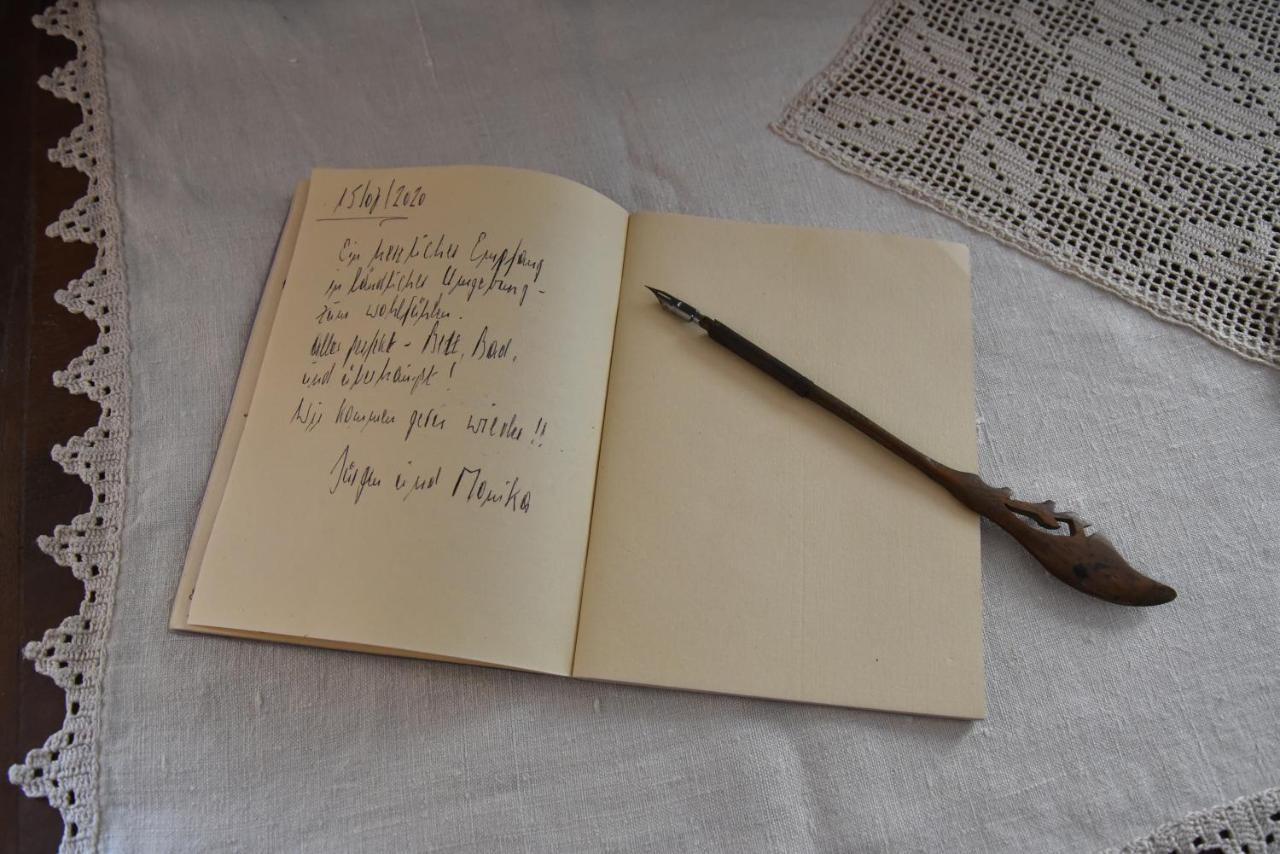 15/07/2020
Ein herzlicher Empfang
in ländlicher Umgebung -
zum wohlfühlen.
alles perfekt - Bett, Bad,
und überhaupt!
Wir kommen gerne wieder!!
Jürgen und Monika